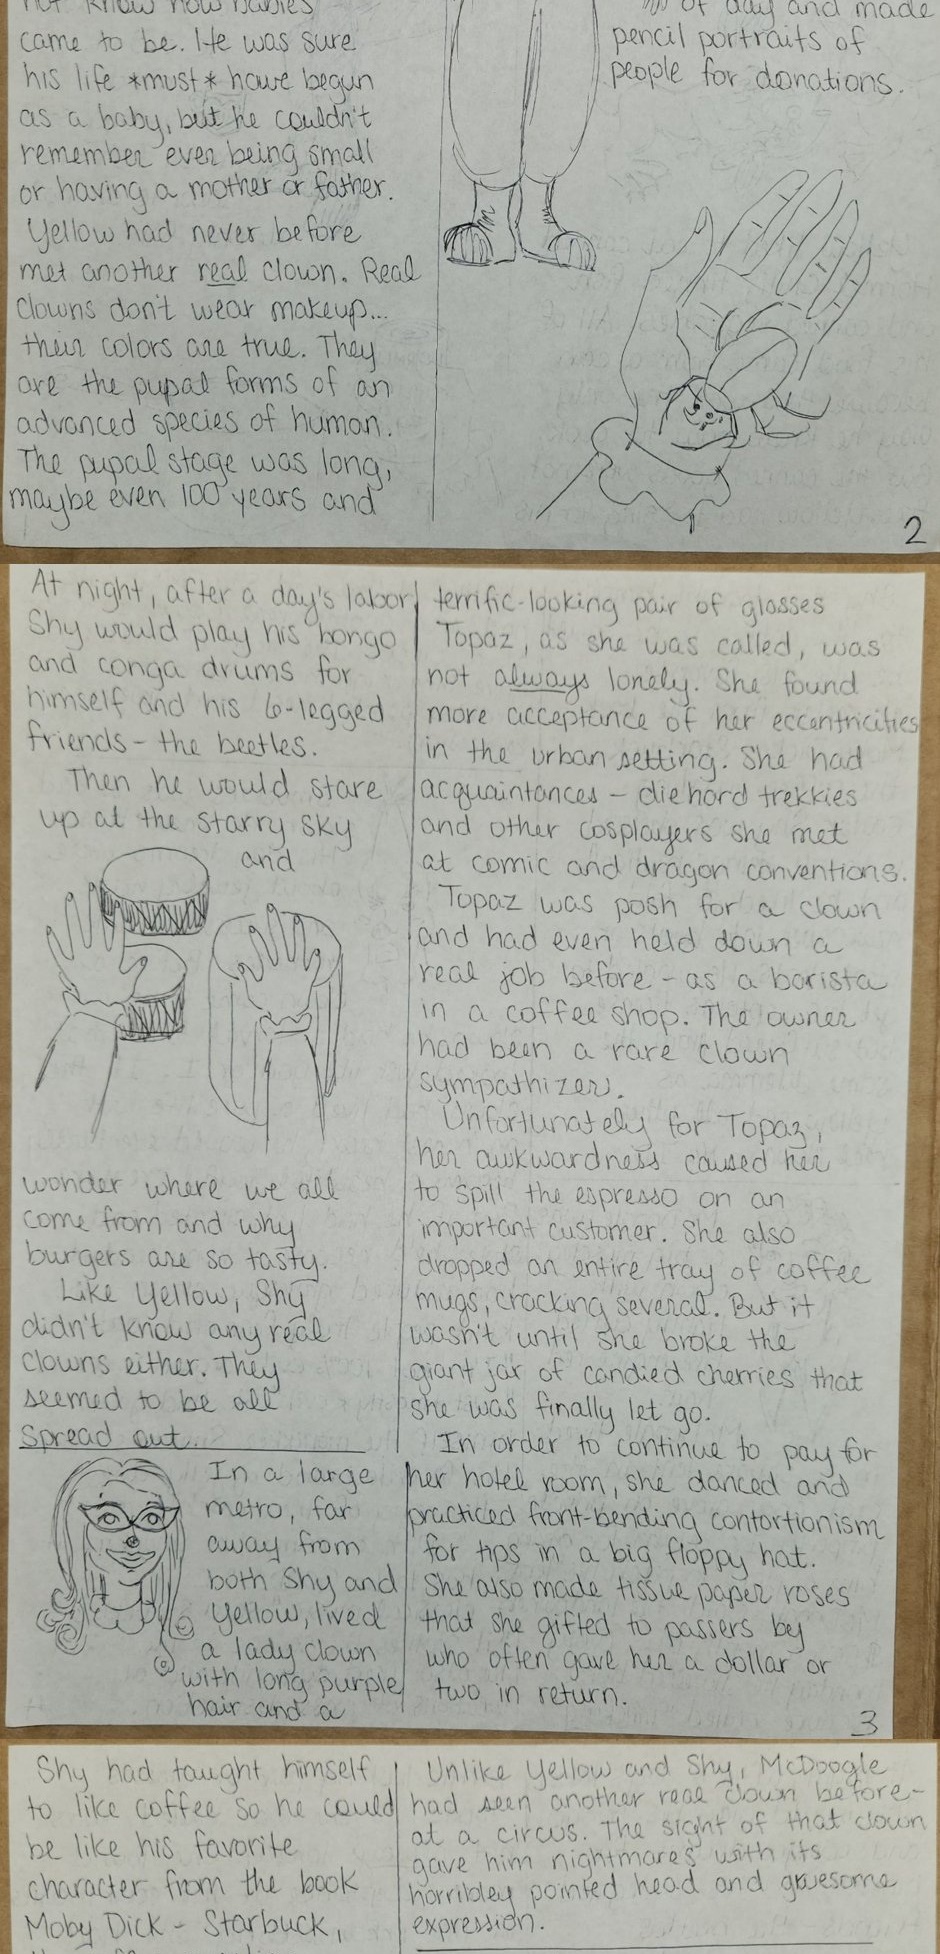 not know how babies
came to be. He was sure
his life *must* have begun
as a baby, but he couldn't
remember ever being small
or having a mother or father.
Yellow had never before
met another real clown. Real
clowns don't wear makeup...
their colors are true. They
are the pupal forms of an
advanced species of human.
The pupal stage was long,
maybe even 100 years and
of day and made
pencil portraits of
people for donations.
2
At night, after a day's labor,
Shy would play his bongo
and conga drums for
himself and his 6-legged
friends - the beetles.
Then he would stare
up at the starry sky
and
wonder where we all
come from and why
burgers are so tasty.
Like Yellow, Shy
didn't know any real
clowns either. They
seemed to be all
spread out.
In a large
metro, far
away from
both Shy and
Yellow, lived
a lady clown
with long purple
hair and a
terrific-looking pair of glasses
Topaz, as she was called, was
not always lonely. She found
more acceptance of her eccentricities
in the urban setting. She had
acquaintances - diehard trekkies
and other cosplayers she met
at comic and dragon conventions.
Topaz was posh for a clown
and had even held down a
real job before - as a barista
in a coffee shop. The owner
had been a rare clown
sympathizer.
Unfortunately for Topaz,
her awkwardness caused her
to spill the espresso on an
important customer. She also
dropped an entire tray of coffee
mugs, cracking several. But it
wasn't until she broke the
giant jar of candied cherries that
she was finally let go.
In order to continue to pay for
her hotel room, she danced and
practiced front-bending contortionism
for tips in a big floppy hat.
She also made tissue paper roses
that she gifted to passers by
who often gave her a dollar or
two in return.
3
Shy had taught himself
to like coffee so he could
be like his favorite
character from the book
Moby Dick - Starbuck,
Unlike Yellow and Shy, McDoogle
had seen another real clown before -
at a circus. The sight of that clown
gave him nightmares with its
horribley pointed head and gruesome
expression.